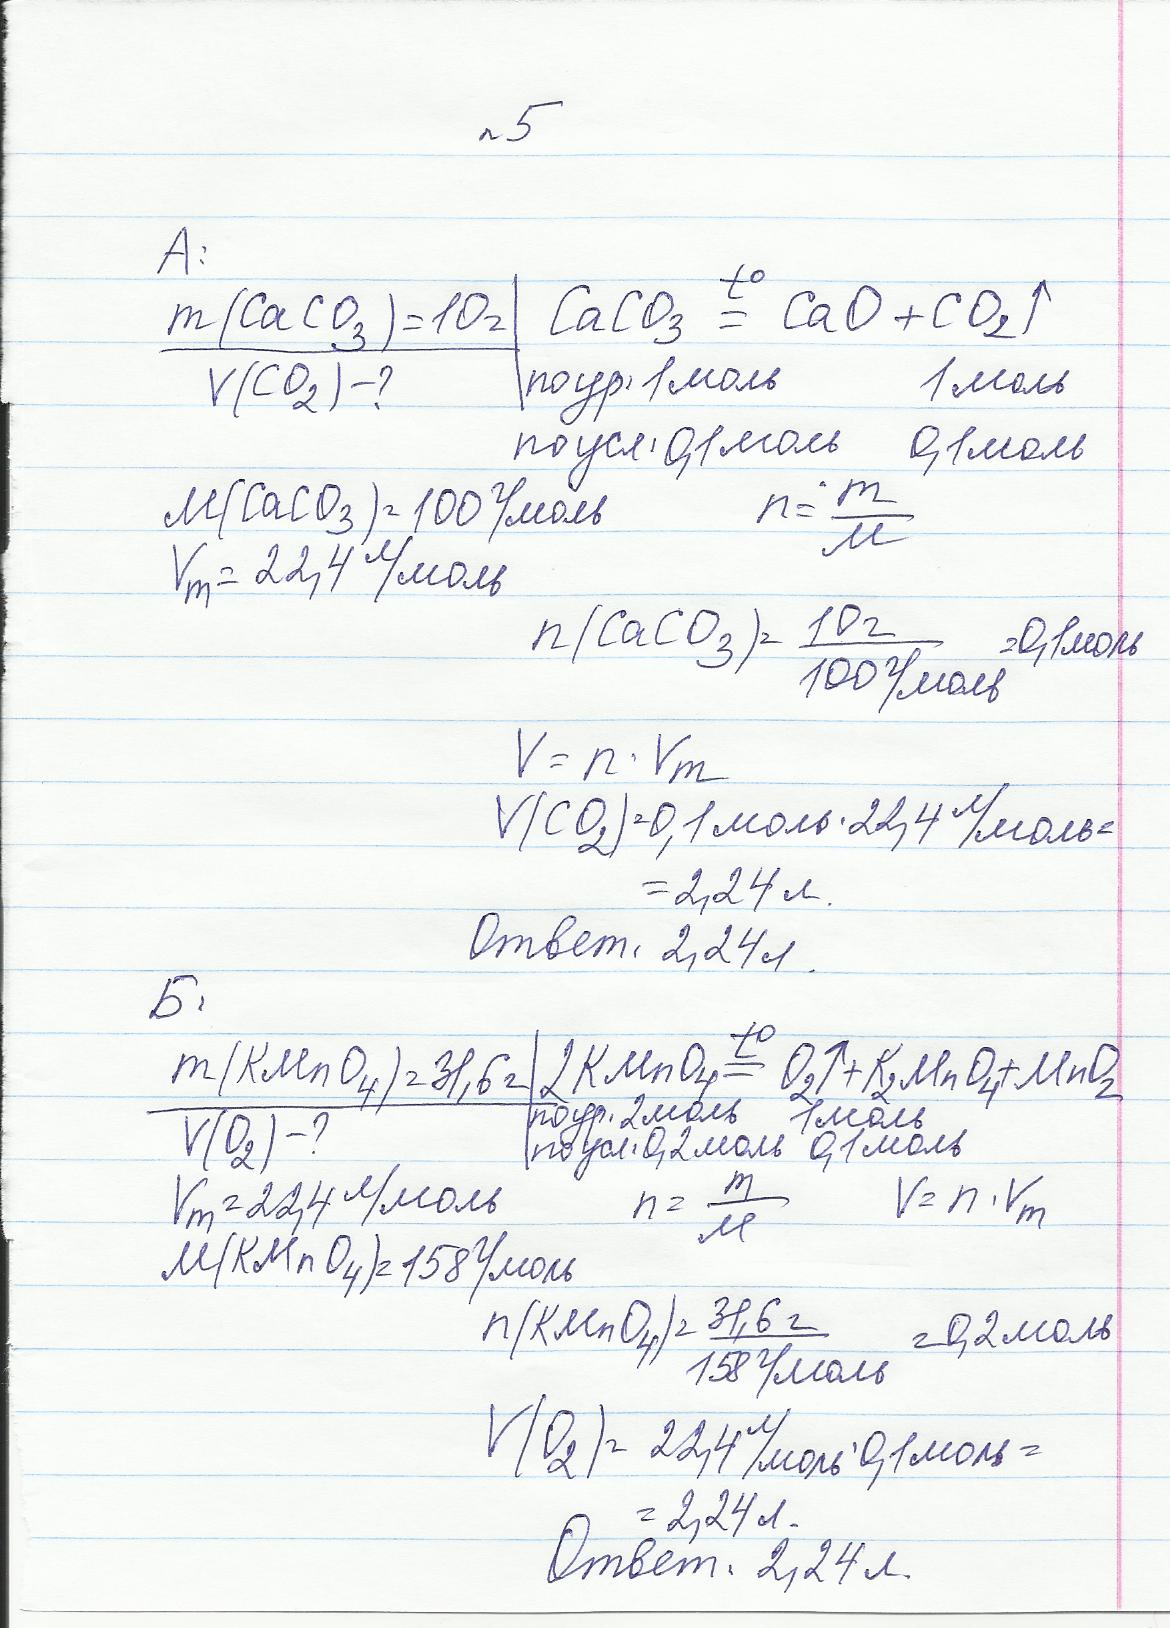 №5
А:
m(CaCO₃)=10г | CaCO₃ t° = CaO + CO₂↑
V(CO₂)-? | по ур: 1 моль 1 моль
по усл: 0,1 моль 0,1 моль
M(CaCO₃)=100 г/моль n = m/M
Vm = 22,4 л/моль
n(CaCO₃)= 10г/100 г/моль =0,1 моль
V = n · Vm
V(CO₂)=0,1 моль · 22,4 л/моль =
= 2,24 л.
Ответ: 2,24 л.
Б:
m(KMnO₄)=31,6г | 2KMnO₄ t° = O₂↑+K₂MnO₄+MnO₂
V(O₂)-? | по ур: 2 моль 1 моль
по усл: 0,2 моль 0,1 моль
Vm = 22,4 л/моль n = m/M V = n · Vm
M(KMnO₄)=158 г/моль
n(KMnO₄)= 31,6 г/158 г/моль =0,2 моль
V(O₂)= 22,4 л/моль · 0,1 моль =
= 2,24 л.
Ответ: 2,24 л.